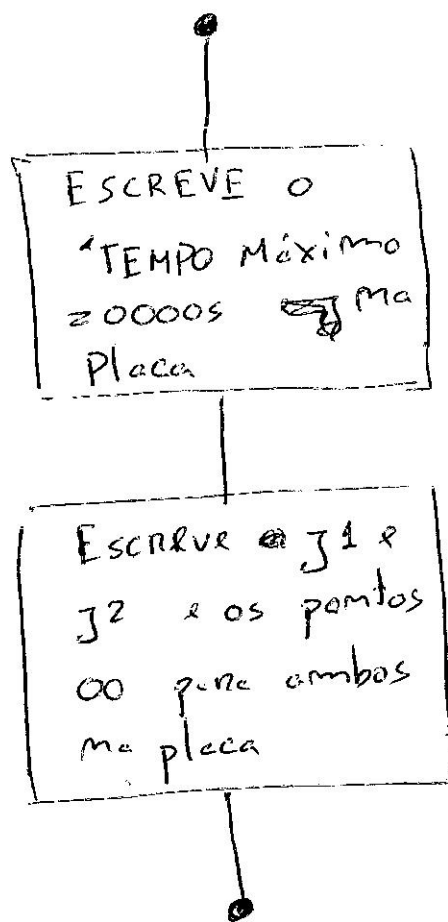 ESCREVE O
"TEMPO Máximo
=0000s na
Placa
Escreve J1 e
J2 e os pontos
00 para ambos
na placa